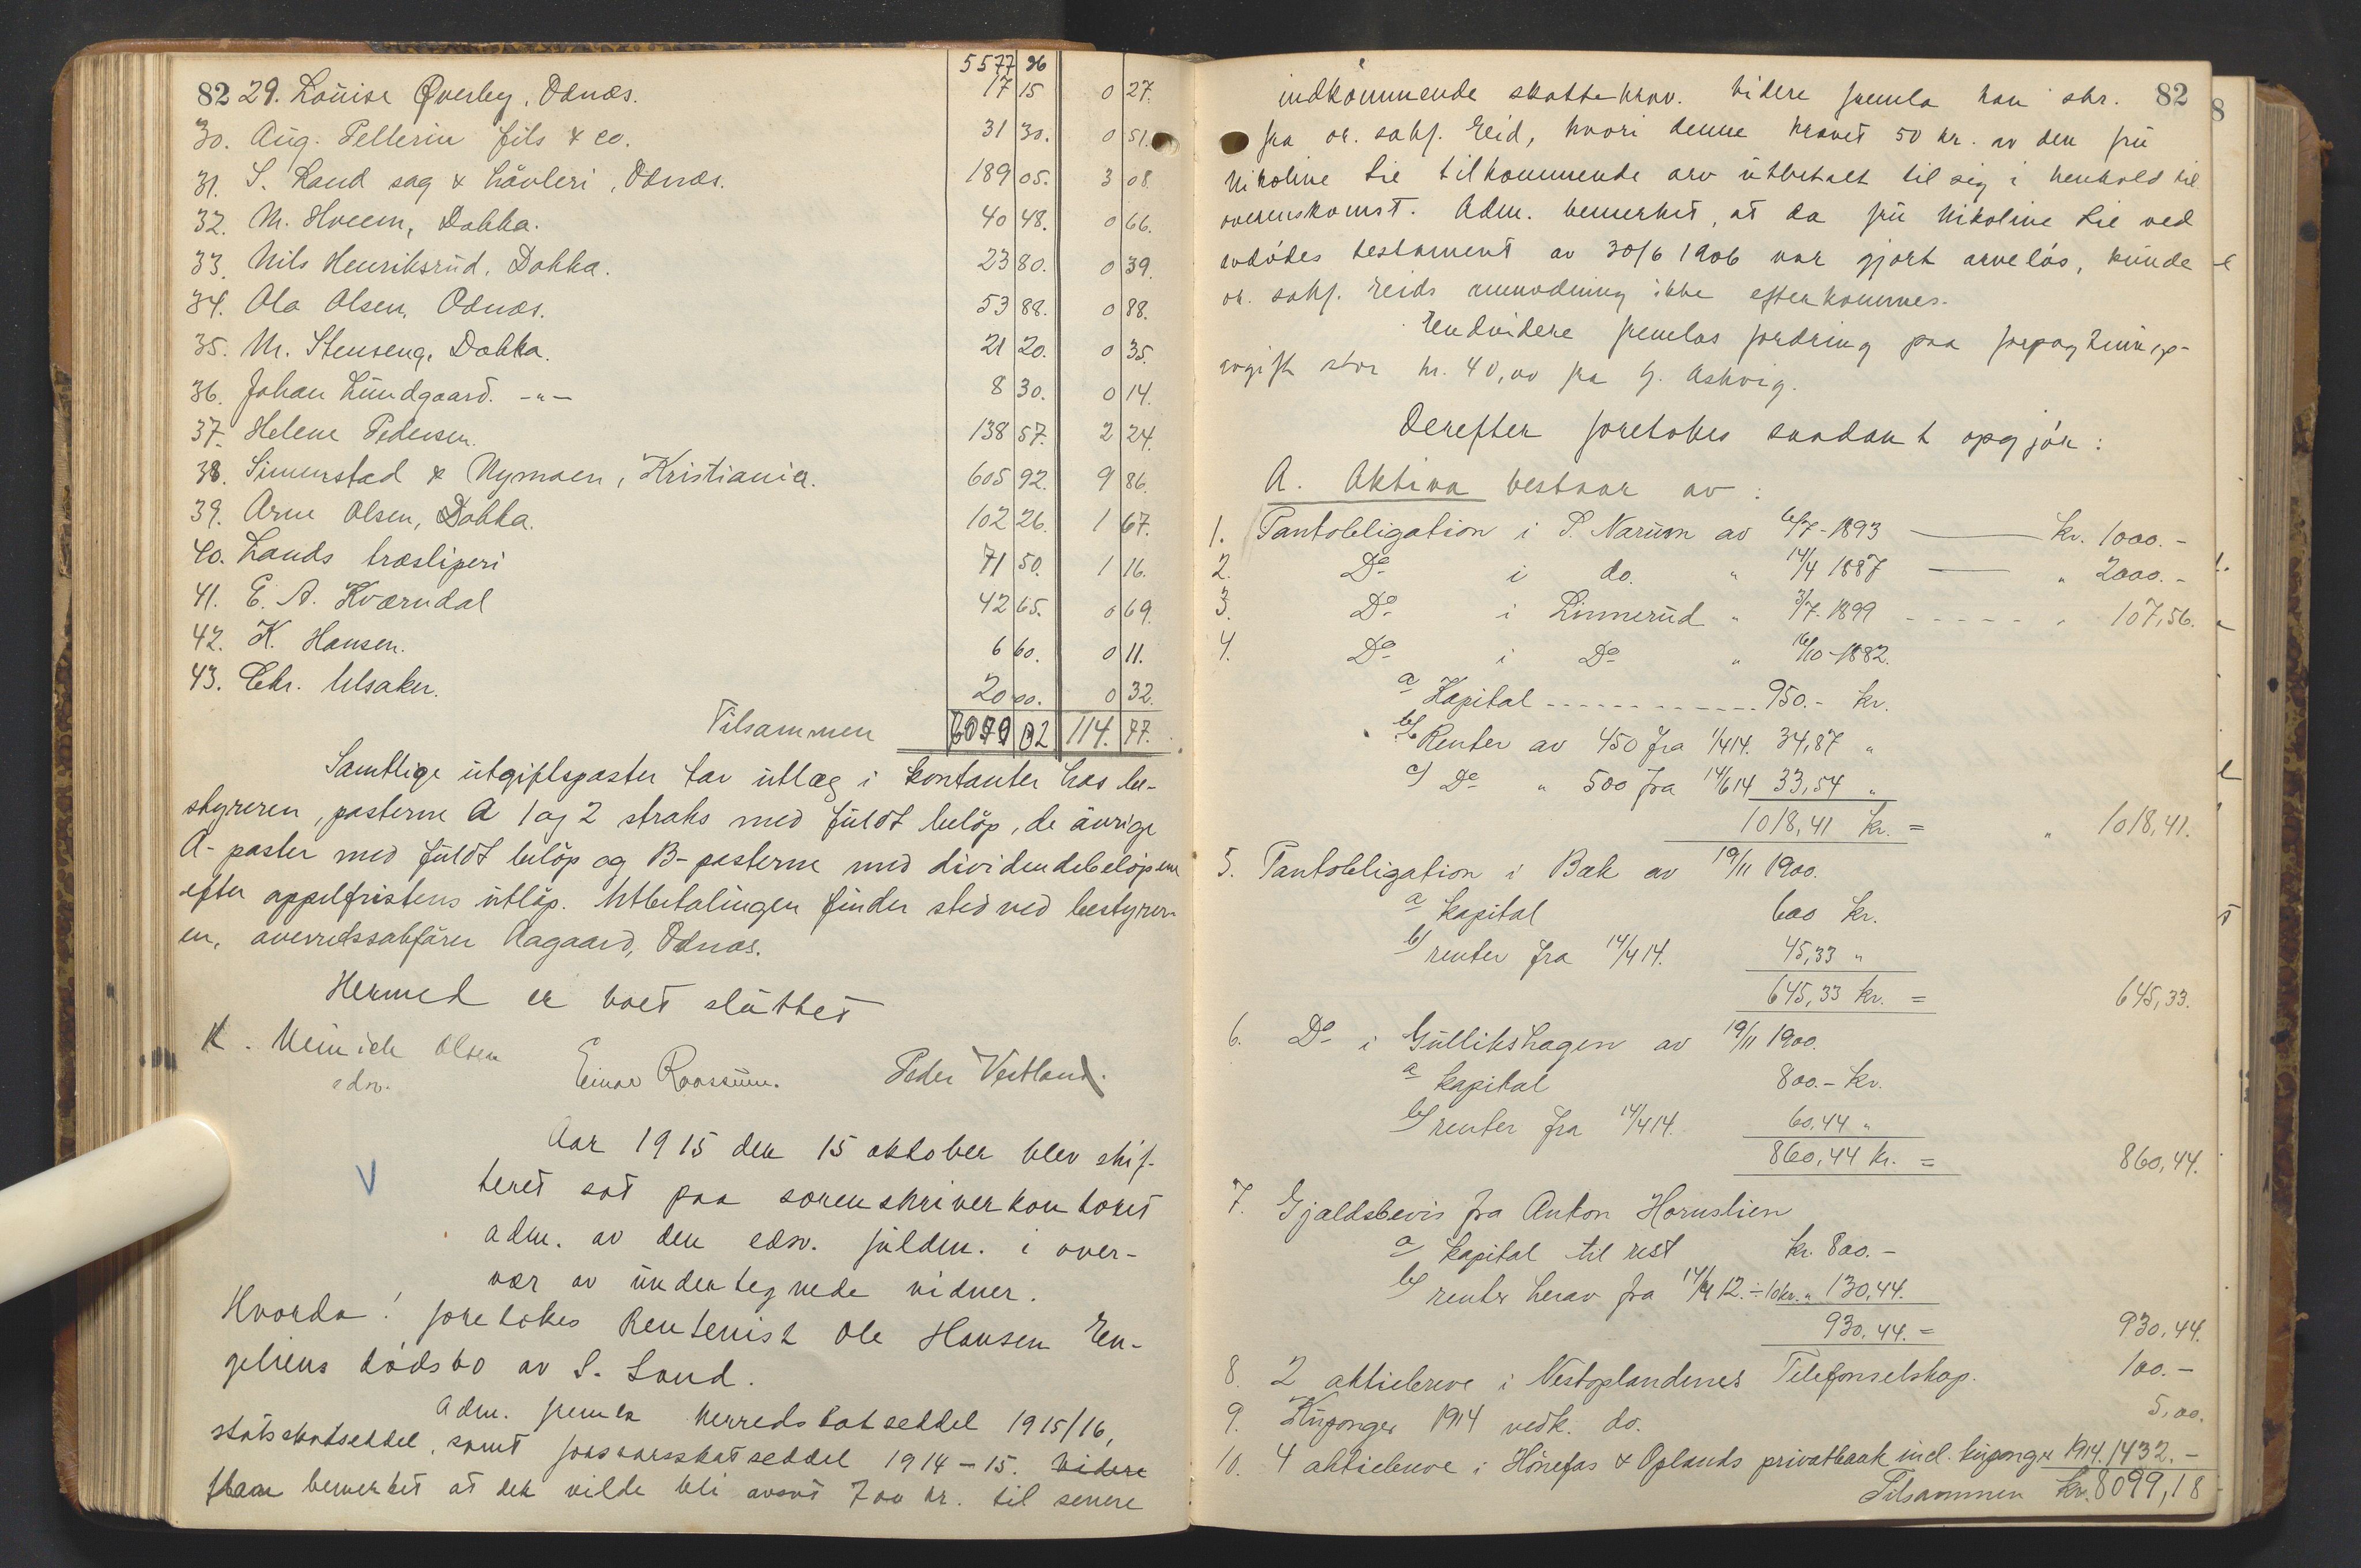 5577 26
82 29. Louise Øverby, Odnæs. 17 15 0 27.
30. Aug. Pellerin fils & co. 31 30. 0 51.
31. S. Land sag & høvleri, Odnæs. 189 05. 3 08.
32. M. Hveem, Dokka. 40 48. 0 66.
33. Nils Henriksrud, Dokka. 23 80. 0 39.
34. Ola Olsen, Odnæs. 53 88. 0 88.
35. M. Stenseng, Dokka. 21 20. 0 35.
36. Johan Lundgaard. -"- 8 30. 0 14.
37. Helene Pedersen. 138 57. 2 24.
38. Simenstad & Nymoen, Kristiania. 605 92. 9 86.
39. Arne Olsen, Dokka. 102 26. 1 67.
40. Lands træsliperi 71 50. 1 16.
41. E. A. Kværndal 42 65. 0 69.
42. K. Hansen. 6 60. 0 11.
43. Chr. Ulsaker. 20 00. 0 32.
Tilsammen 7079 02 114. 77.
Samtlige utgiftsposter tar utlæg i kontanter hos be-
styreren, posterne A 1 og 2 straks med fuldt beløp, de øvrige
A-poster med fuldt beløp og B-posterne med dividendebeløpene
efter appelfristens utløp. Utbetalingen finder sted ved bestyrer-
en, overretssakfører Aagaard, Odnæs.
Hermed er boet sluttet
K. Meinich Olsen
edsv. Einar Roossum. Peder Vestland.
Aar 1915 den 15 oktober blev skif-
teret sat paa sorenskriverkontoret
adm. av den edsv. fuldm. i over-
vær av undertegnede vidner.
Hvorda! foretokes Rentenist Ole Hansen En-
geliens dødsbo av S. Land.
Adm. fremla herredskatseddel 1915/16,
statsskatseddel, samt forsvarsskatseddel 1914-15. Videre
Han bemerket at der vilde bli avsat 700 kr. til senere
indkommende skattekrav. Videre fremla han skr. 82
fra or. sakf. Reid, hvori denne krævet 50 kr. av den fru
Nikoline Lie tilkommende arv utbetalt til sig i henhold til
overenskomst. Adm. bemerket, at da fru Nikoline Lie ved
avdødes testament av 30/6 1906 var gjort arveløs, kunde
or. sakf. Reids anmodning ikke efterkommes.
Endvidere fremlas fordring paa forpagtnings-
avgift stor kr. 40,00 fra G. Askvig.
Derefter foretokes saadant opgjør:
A. Aktiva bestaar av:
1. Pantobligation i P. Narum av 6/7-1893 kr. 1000.-
2. Do i do. " 14/4 1887 " 2000.-
3. Do i Linnerud " 3/7-1899 " 107,56.
4. Do i Do " 16/10-1882.
a Kapital 950.- kr.
b/ Renter av 450 fra 1/4 14. 34,87 "
c/ Do " 500 fra 14/6 14 33,54 "
1018,41 kr. = " 1018,41.
5. Pantobligation i Bak av 19/11 1900.
a kapital 600 kr.
b/ renter fra 14/4 14. 45,33 "
645,33 kr. = 645,33.
6. Do i Gullikshagen av 19/11 1900.
a kapital 800.- kr.
b/ renter fra 14/4 14. 60,44 "
860,44 kr. = 860,44.
7. Gjældsbevis fra Anton Hornslien
a/ kapital til rest kr. 800.-
b/ renter herav fra 14/4 12. ÷ 10kr. " 130,44.
930,44. = 930,44.
8. 2 aktiebreve i Vestoplandenes Telefonselskap. 100.-
9. Kuponger 1914 vedk. do. 5,00.
10. 4 aktiebreve i Hønefos & Oplands privatbank incl. kuponger 1914. 1432.-
Tilsammen kr. 8099,18